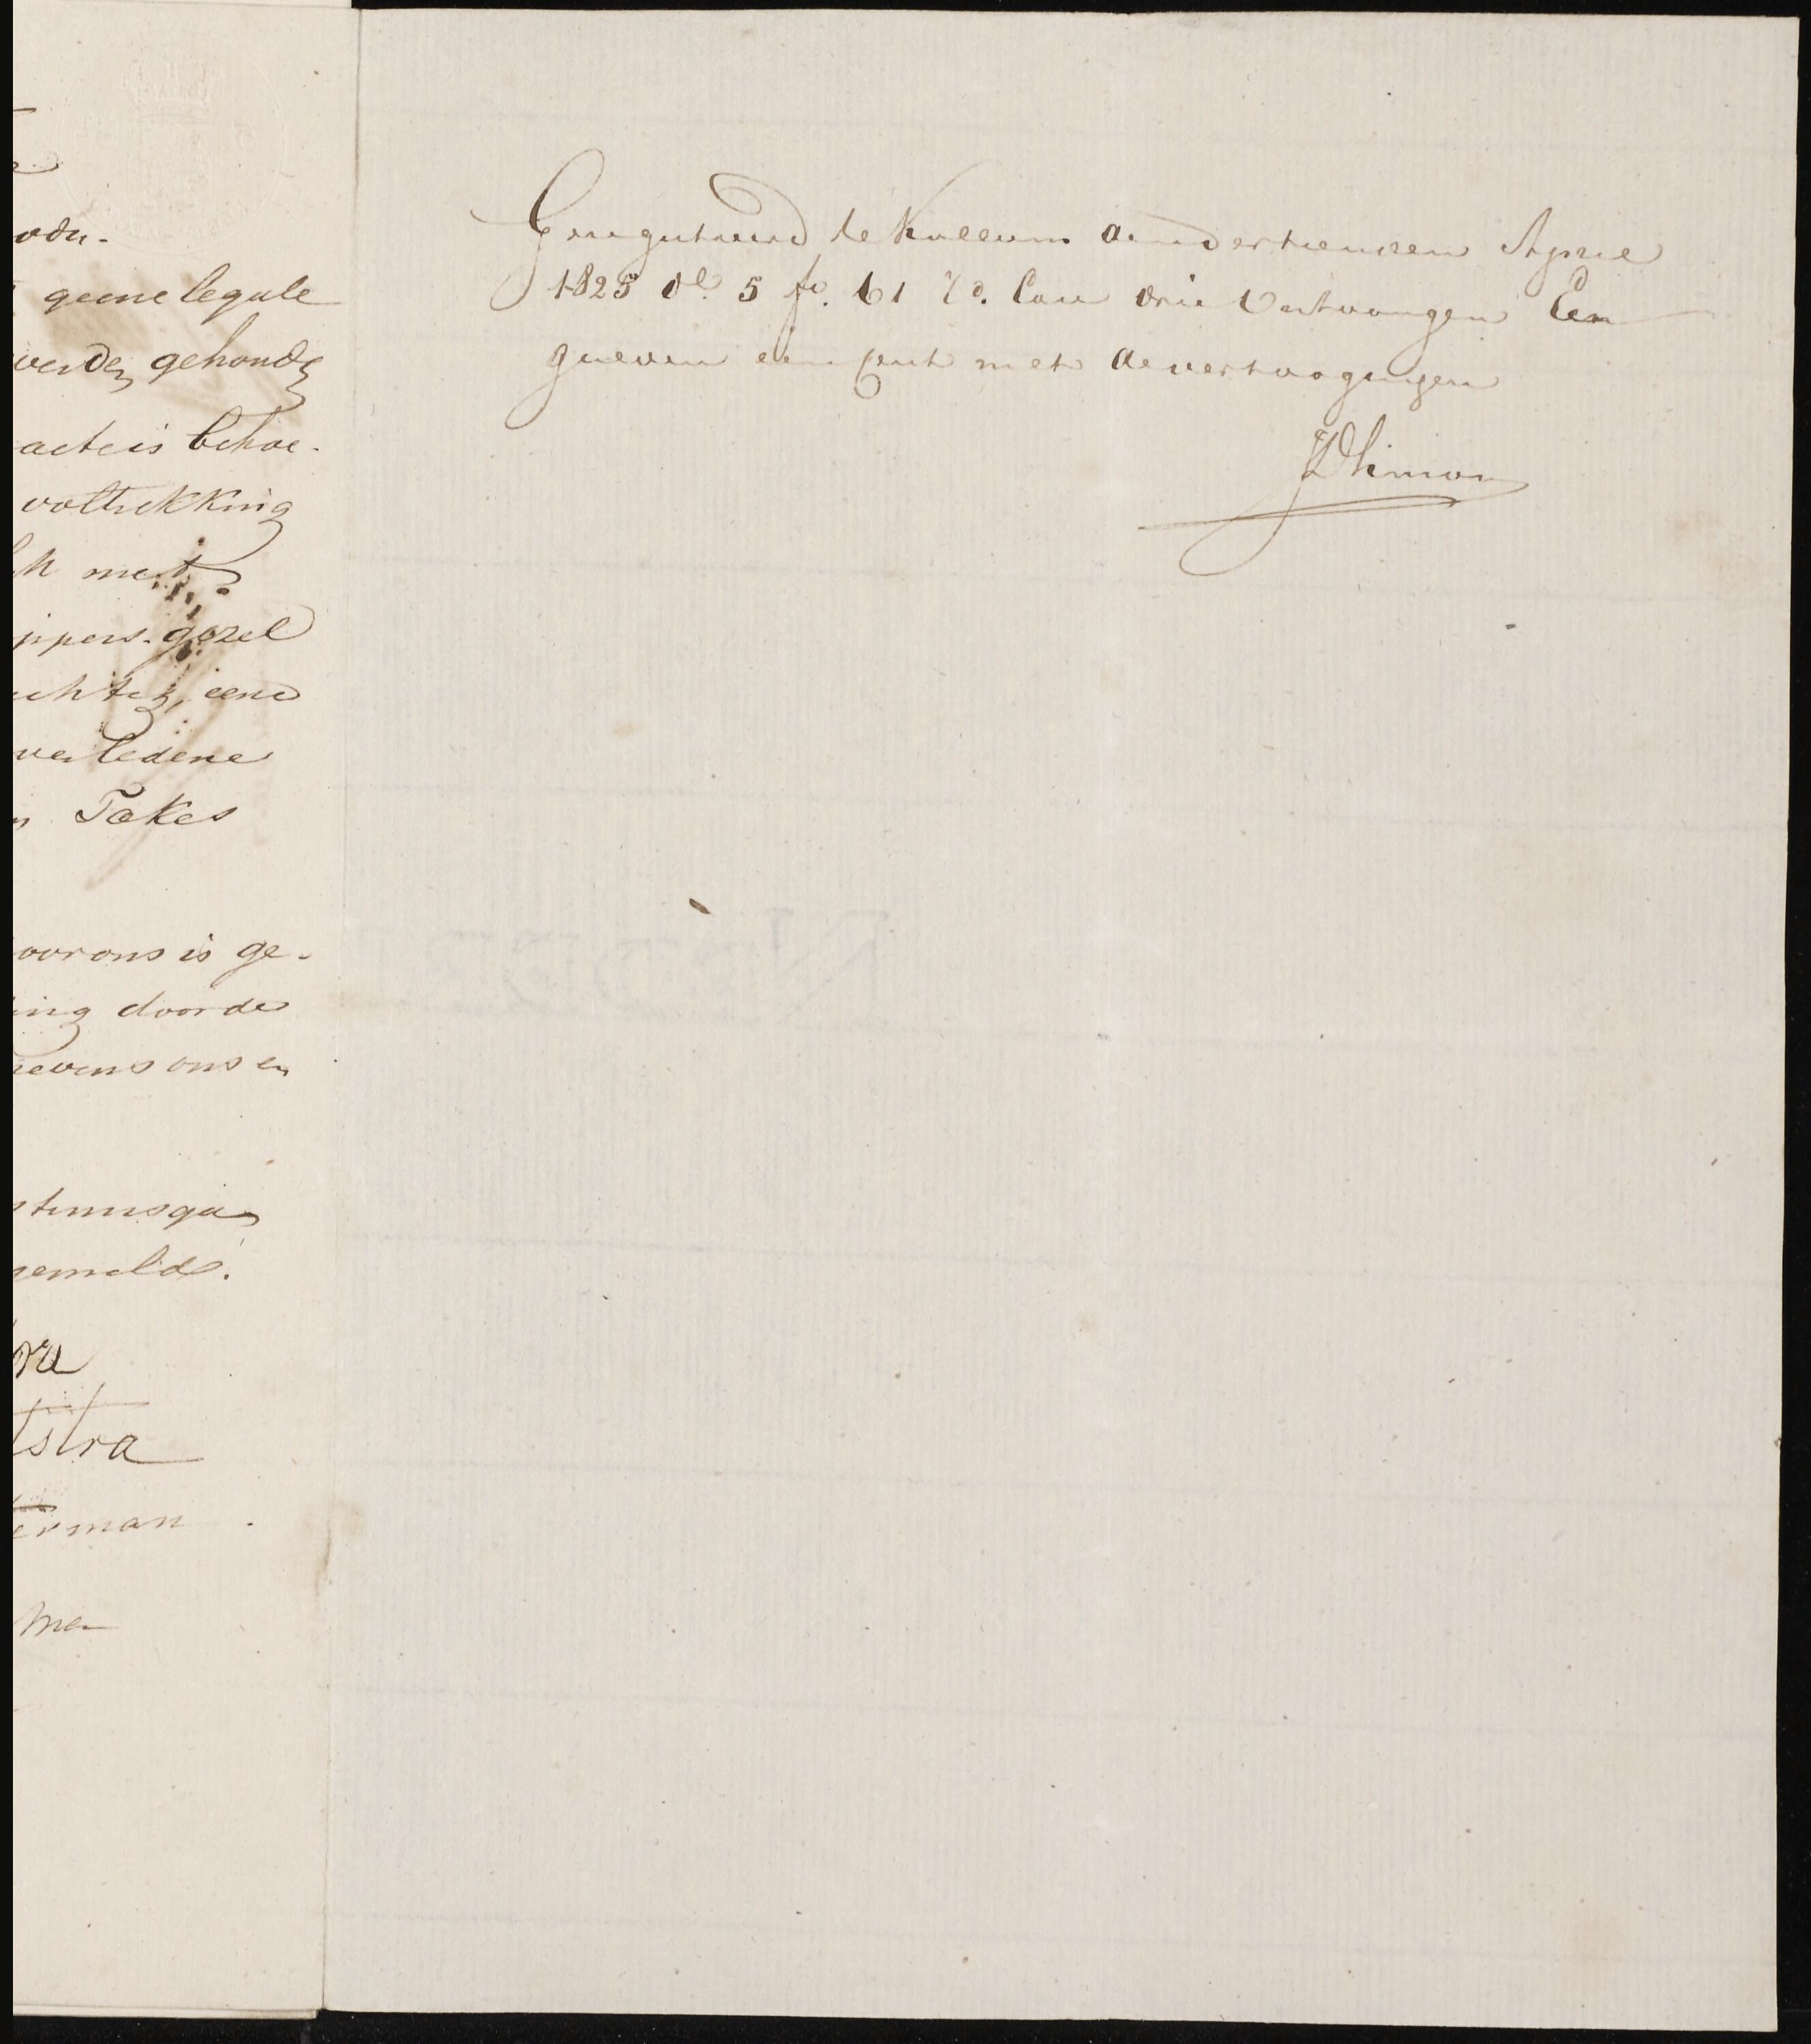 odu-
geene legale
werden gehouden
acte is behoe-
voltrekking
met
ippers gezel
echten, eene
verledene
n Tækes
voor ons is ge-
ing door de
nevens ons en
stemisga
gemeld.
ora
tstra
terman
ma
Geregistreerd te Kollum den dertienden April
1825 dl. 5 fo. 61 vo. Case drie Ontvangen Een
gulden een cent met de verhoogingen